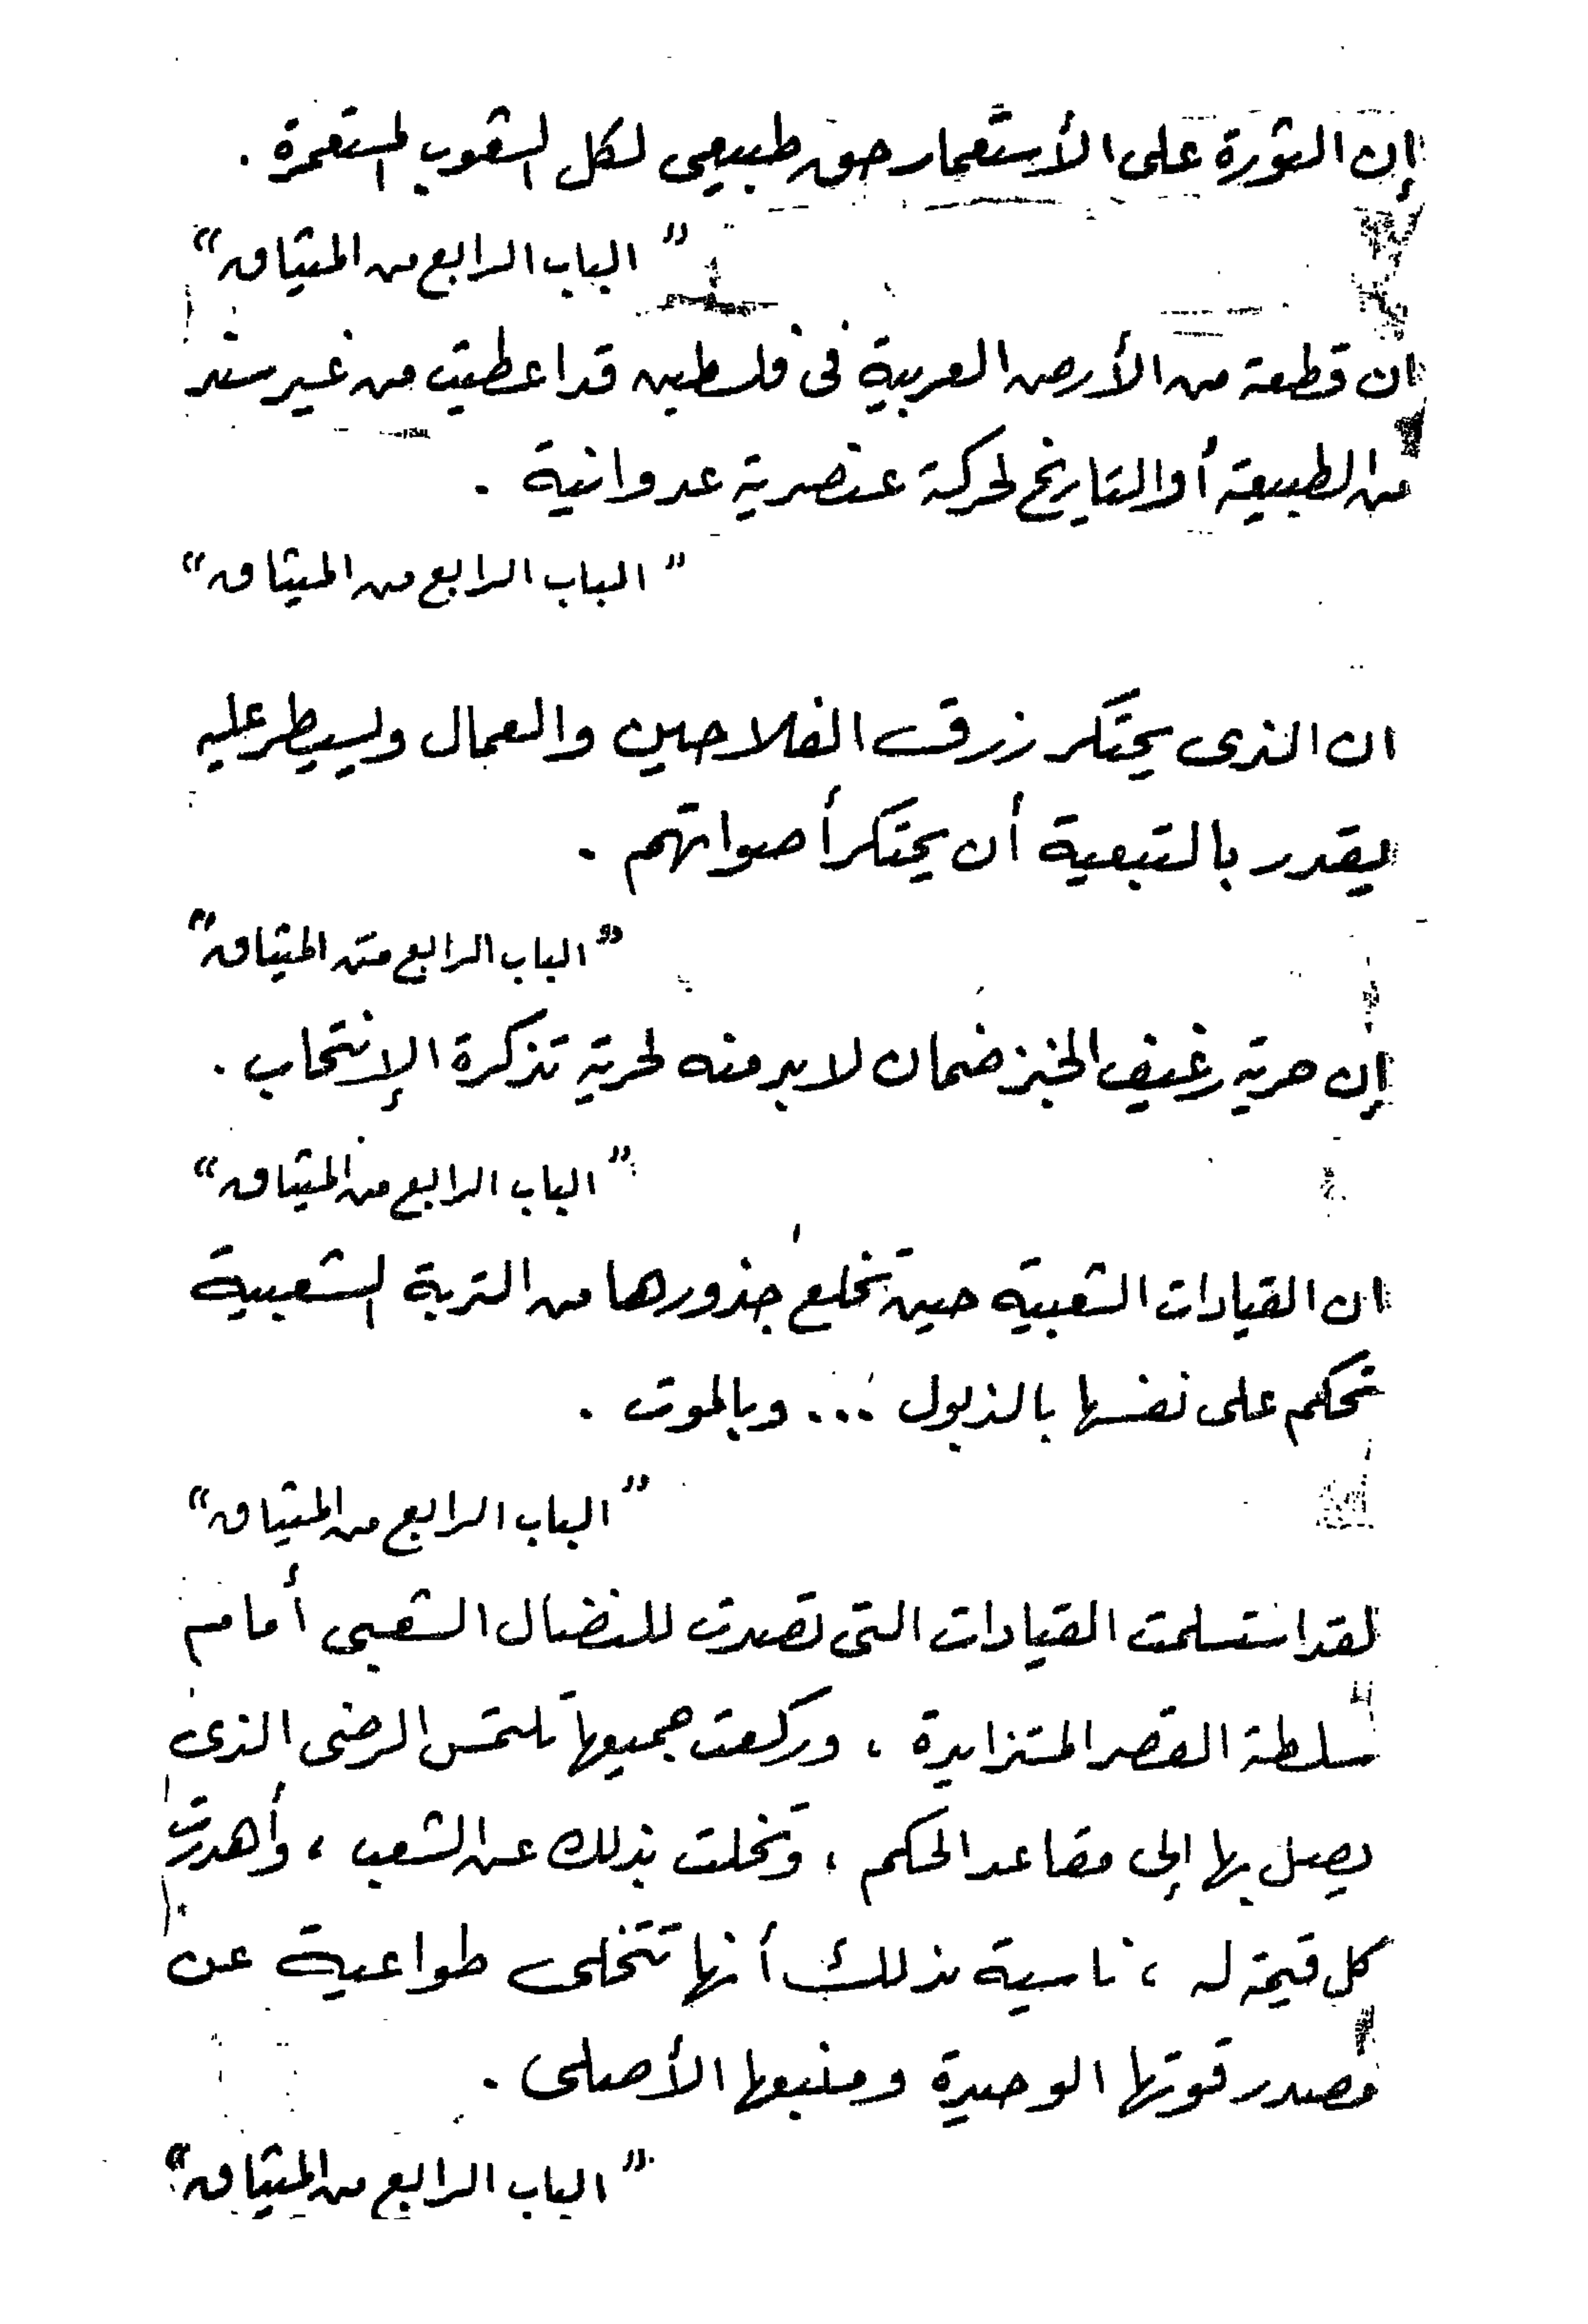 إن الثورة على الأستعمار حق طبيعى لكل الشعوب المستعمرة .
" الباب الرابع من الميثاق "
ان قطعة من الأرض العربية فى فلسطين قد اعطيت من غير سند
من الطبيعة أو التاريخ لحركة عنصرية عدوانية .
" الباب الرابع من الميثاق "
ان الذى يحتكر رزق الفلاحين والعمال ويسيطر عليه
يقدر بالتبعية أن يحتكر أصواتهم .
" الباب الرابع من الميثاق "
إن حرية رغيف الخبز ضمان لابد منه لحرية تذكرة الإنتخاب .
" الباب الرابع من الميثاق "
ان القيادات الشعبية حين تخلع جذورها من التربة الشعبية
تحكم على نفسها بالذبول ... وبالموت .
" الباب الرابع من الميثاق "
لقد استسلمت القيادات التى تصدت للنضال الشعبى أمام
سلطة القصر المتزايدة ، وركعت جميعها تلتمس الرضى الذى
يصل بها إلى مقاعد الحكم ، وتخلت بذلك عن الشعب ، وأهدرت
كل قيمة له ، ناسية بذلك أنها تتخلى طواعية عن
مصدر قوتها الوحيدة ومنبعها الأصلى .
" الباب الرابع من الميثاق "